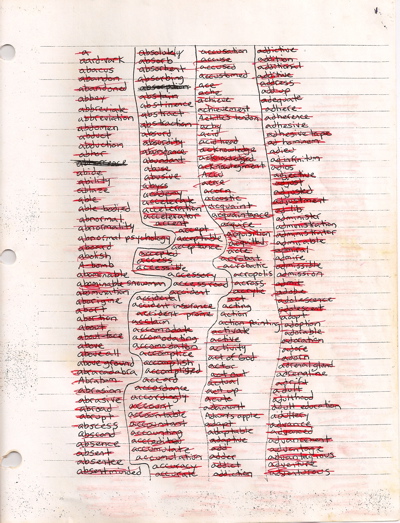 a
aardvark
abacus
abandon
abandoned
abbey
abbreviate
abbreviation
abdomen
abduct
abduction
abhor
abide
ability
able
able bodied
abnormal
abnormality
abnormal psychology
aboard
abolish
A bomb
abominable
abominable snowman
abomination
aborigine
abort
abortion
about
about face
above
above all
above ground
abracadabra
Abraham
abrasion
abrasive
abroad
abrupt
abscess
abscond
absence
absent
absentee
absent minded
absolutely
absorb
absorbent
absorbing
absorption
abstain
abstinence
abstract
abstraction
absurd
absurdity
abundance
abundant
abuse
abusive
abyss
academy
accelerate
acceleration
accelerator
accent
accept
acceptable
acceptance
accepted
access
accessible
accessory
accident
accidental
accident insurance
accident prone
acclaim
accommodate
accomodating
accomodation
accomplice
accomplish
accomplished
accord
accordance
accordingly
account
accountable
accountant
accounting
accredited
accumulate
accumulation
accuracy
accurate
accusation
accuse
accused
accustomed
ace
ache
achieve
achievement
Achilles tendon
acid
acid head
acknowledge
acknowledged
acknowledgment
acne
acorn
acoustic
acquaint
acquaintance
acquire
acquit
acre
acrobat
acrobatic
acropolis
across
act
acting
action
action painting
activate
active
activity
act of God
actor
actual
act up
acute
adamant
Adam's apple
adapt
adaptable
adaptive
add
adder
addict
addiction
addictive
addition
additional
additive
address
add up
adequate
adhere
adherence
adhesive
adhesive tape
ad hominem
adieu
ad infinitum
adios
adjective
adjust
adjusted
adjustment
administer
administration
administrator
admirable
admiral
admire
admissible
admission
admit
adolescence
adolescent
adopt
adoption
adorable
adoration
adore
adorn
adrenal gland
adrenaline
adrift
adult
adulthood
adult education
adultery
advance
advanced
advancement
advantage
advantageous
adventure
adventurous